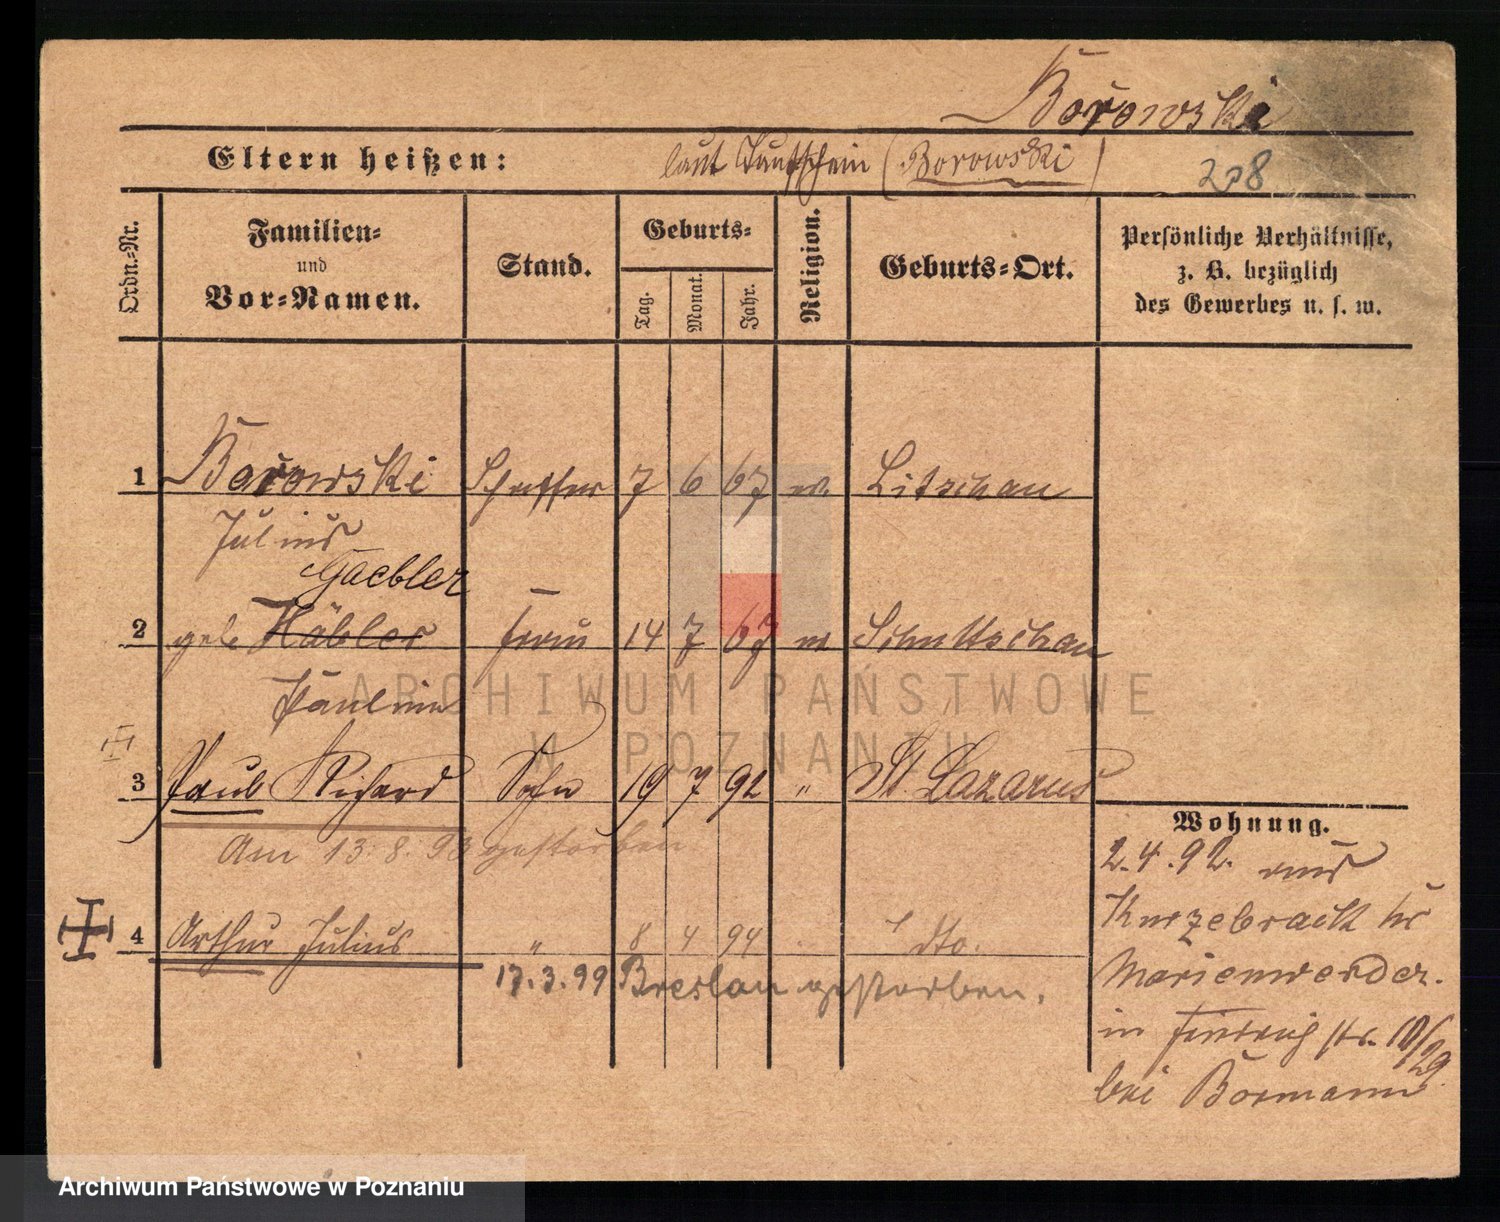 Borowski
Eltern heißen: laut Taufschein (Borowski) 208
Ordn.-Nr.
Familien-
und
Vor-Namen.
Stand.
Geburts-
Tag. Monat. Jahr.
Religion.
Geburts-Ort.
Persönliche Verhältnisse,
z. B. bezüglich
des Gewerbes u. s. w.
1 Borowski 7 6 67 Litschau
Julius
Gaebler
2 geb. Häbler Frau 14 7 67
Pauline
3 Paul Richard Sohn 19 7 92 " St. Lazarus
Am 13.8.93 gestorben
4 Arthur Julius " 8 4 94 dto.
17.3.99 Breslau gestorben.
Wohnung.
2.4.92. aus
Kurzebrack
Marienwerder.
in str. 10/29
bei Bormann
ARCHIWUM PAŃSTWOWE
W POZNANIU
Archiwum Państwowe w Poznaniu